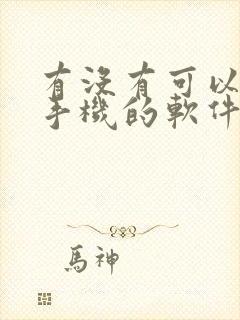 有沒有可以
手機的軟件
馬神